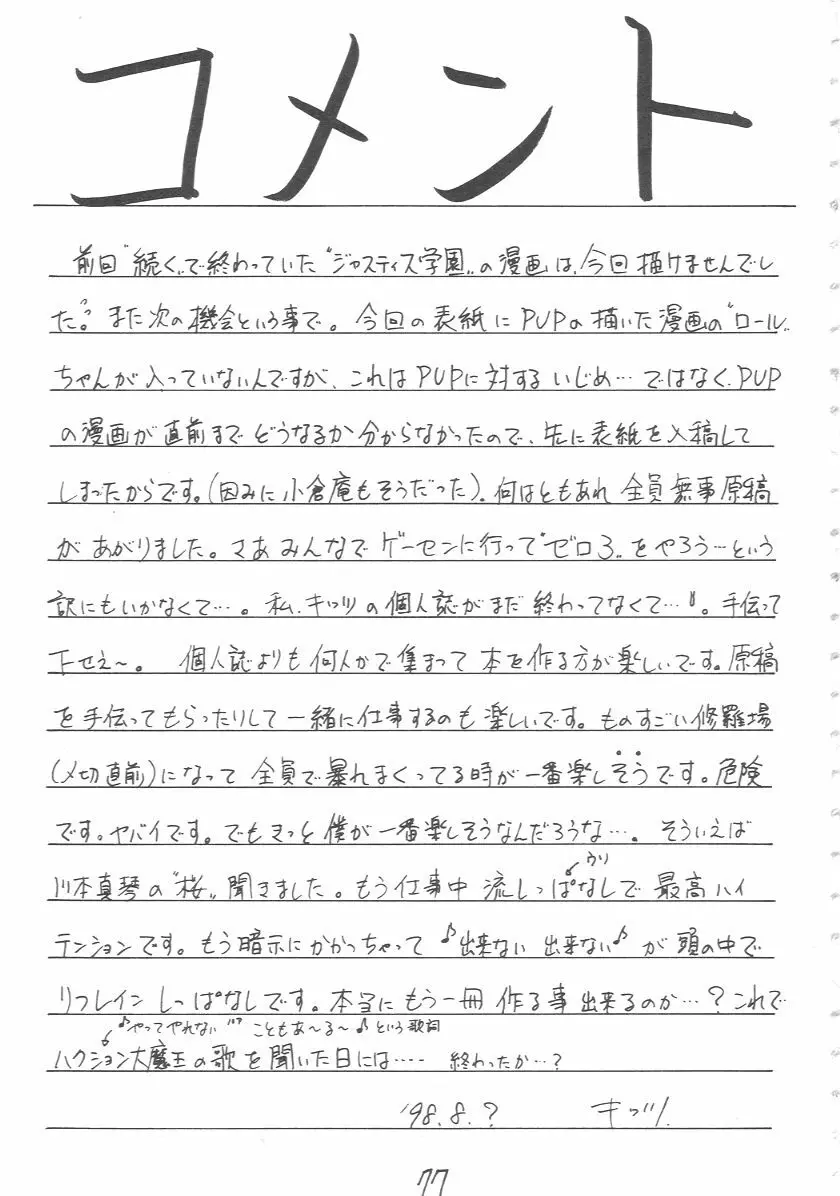 コメント
前回“続く„で終わっていた“ジャスティス学園„の漫画は、今回描けませんでし
た。また次の機会という事で。今回の表紙にPUPの描いた漫画の“ロール„
ちゃんが入っていないんですが、これはPUPに対するいじめ…ではなく、PUP
の漫画が直前までどうなるか分からなかったので、先に表紙を入稿して
しまったからです。(因みに小倉庵もそうだった)。何はともあれ全員無事原稿
があがりました。さあみんなでゲーセンに行って“ゼロ3„をやろう…という
訳にもいかなくて…。私、キッツの個人誌がまだ終わってなくて…。手伝って
下せえ〜。個人誌よりも何人かで集まって本を作る方が楽しいです。原稿
を手伝ってもらったりして一緒に仕事するのも楽しいです。ものすごい修羅場
(〆切直前)になって全員で暴れまくってる時が一番楽しそうです。危険
です。ヤバイです。でもきっと僕が一番楽しそうなんだろうな…。そういえば
川本真琴の“桜„聞きました。もう仕事中流しっぱなしで最高ハイ
テンションです。もう暗示にかかっちゃって♪出来ない出来ない♪が頭の中で
リフレインしっぱなしです。本当にもう一冊作る事出来るのか…?これで
♪やってやれない こともあ〜る〜♪という歌詞
ハクション大魔王の歌を聞いた日には…… 終わったか…?
'98.8.? キッツ
77